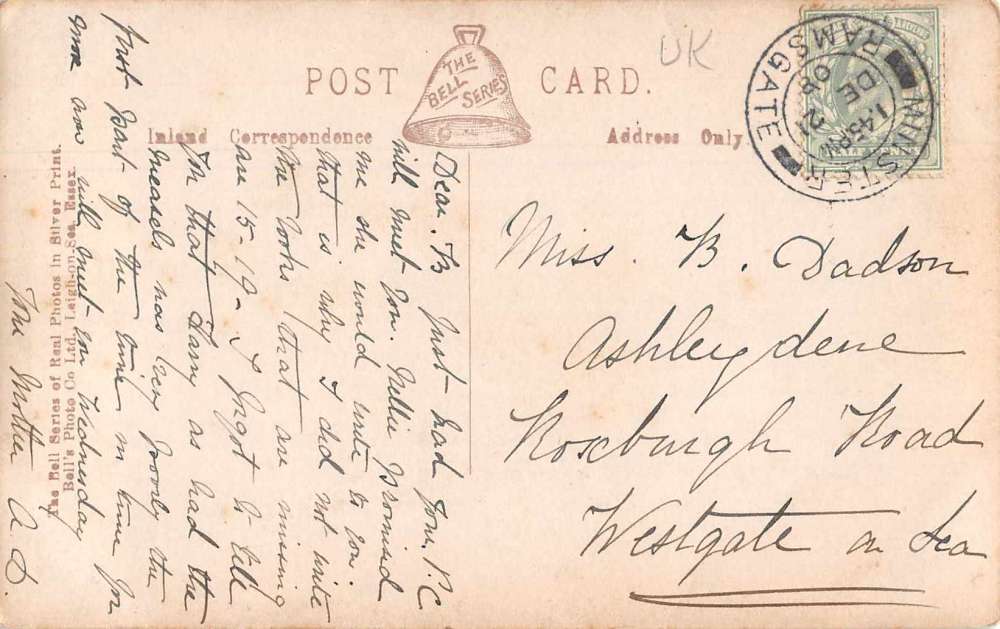 POST CARD.
THE
BELL
SERIES
UK
Inland Correspondence
Address Only.
MINSTER
RAMSGATE
1.45 PM
DE 21
06
HALF PENNY
The Bell Series of Real Photos in Silver Print.
Bell's Photo Co Ltd. Leigh-on-Sea, Essex.
Dear B Just had your P.C
will meet you. Nellie promised
me she would write to you.
that is why I did not write
The Books that are missing
are 15-19- I forgot to tell
you that Harry as had the
measels has very poorly the
first part of the time
now will meet you Wednesday
The Mother A. D.
Miss. B. Dadson
Ashleydene
Roxburgh Road
Westgate on Sea